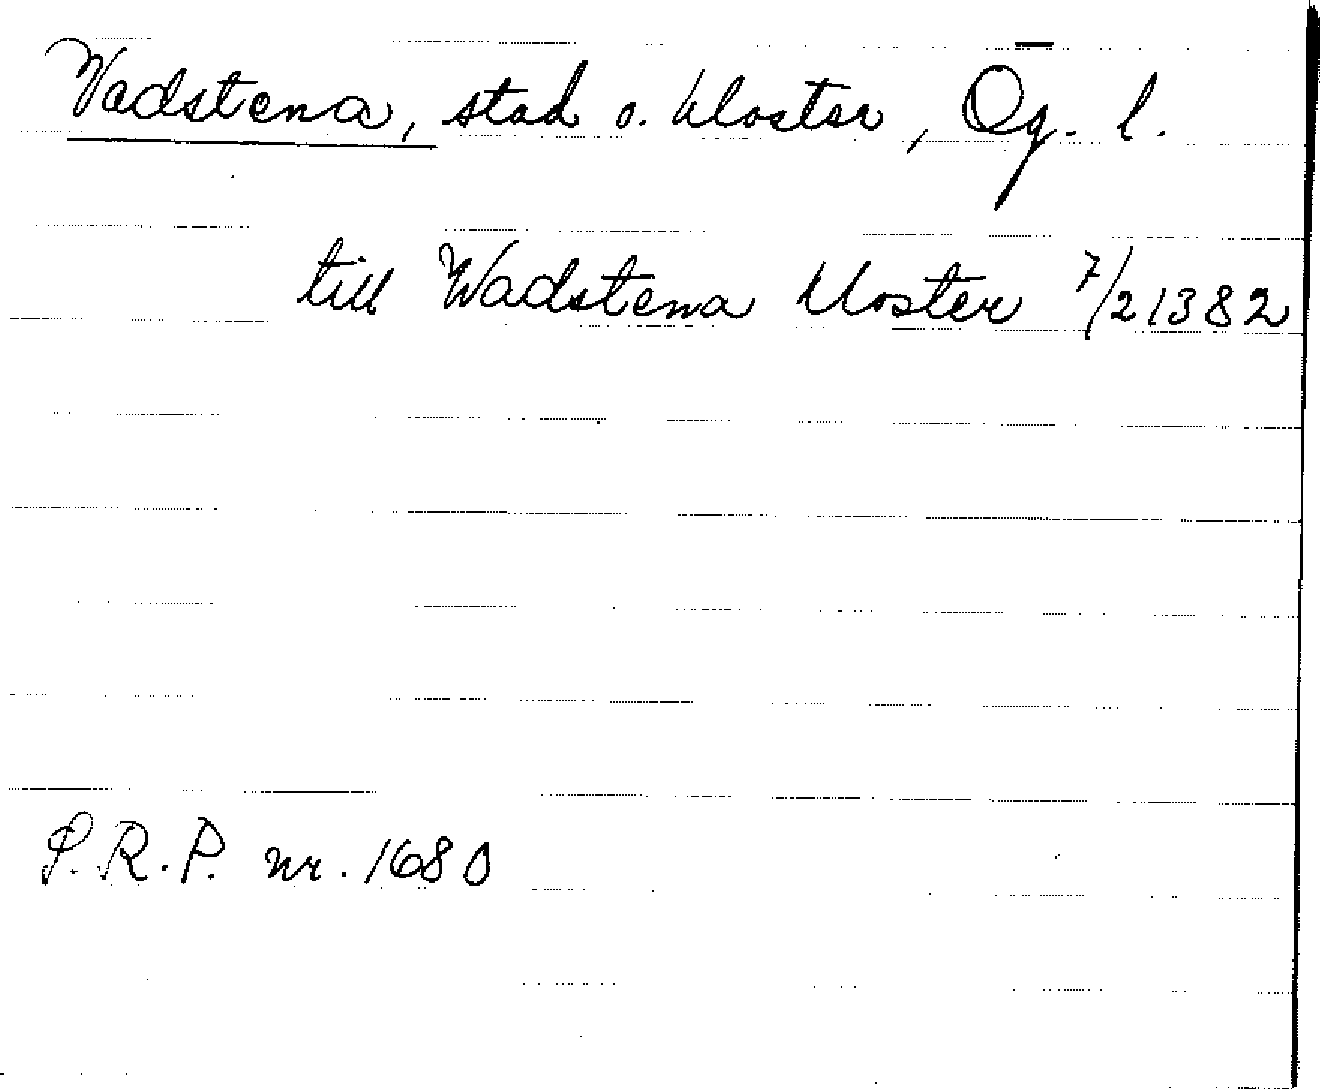 Vadstena, stad o. kloster, Ög. l.
till Wadstena kloster 7/2 1382
S.R.P. nr. 1680